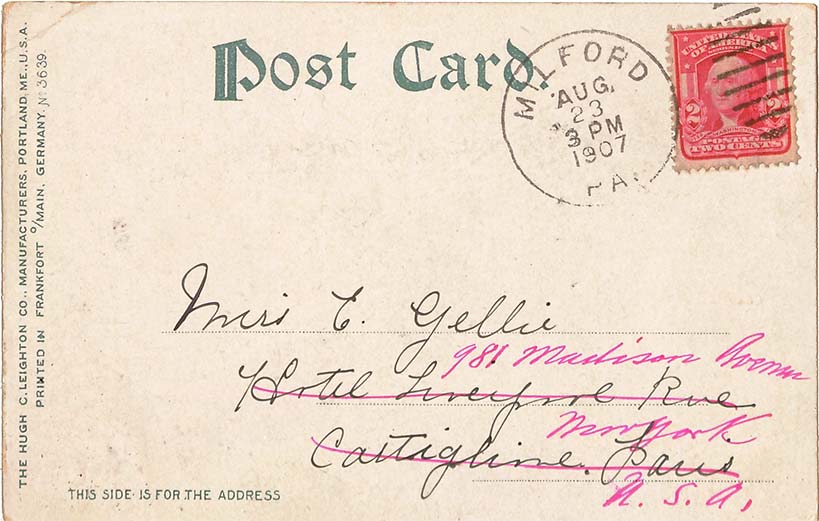 Post Card.
MILFORD
AUG.
23
3 PM
1907
PA.
UNITED STATES
OF AMERICA
2 2
POSTAGE
TWO CENTS
Miss E. Gellie
981 Madison Avenue
Hotel Liverpool Rue
New York
Castiglione. Paris
U. S. A.
THIS SIDE IS FOR THE ADDRESS
THE HUGH C. LEIGHTON CO., MANUFACTURERS, PORTLAND, ME., U.S.A.
PRINTED IN FRANKFORT O/MAIN, GERMANY. No 3639.